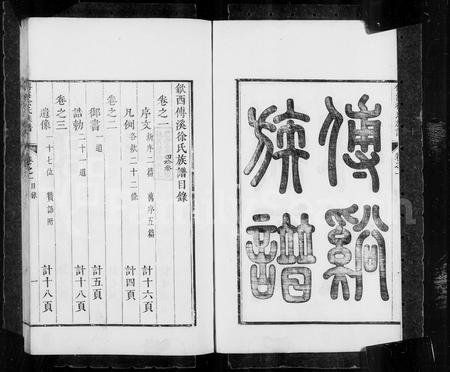 傅溪
族譜
歙西傅溪徐氏族譜目錄
卷之一
序文 新序二篇 舊序五篇 計十六頁
凡例 各欵二十二條 計四頁
卷之二
御書 一道 計五頁
誥勅 二十一道 計十八頁
卷之三
遺像 一十七位 贊語附 計十八頁
卷之一 目錄
一